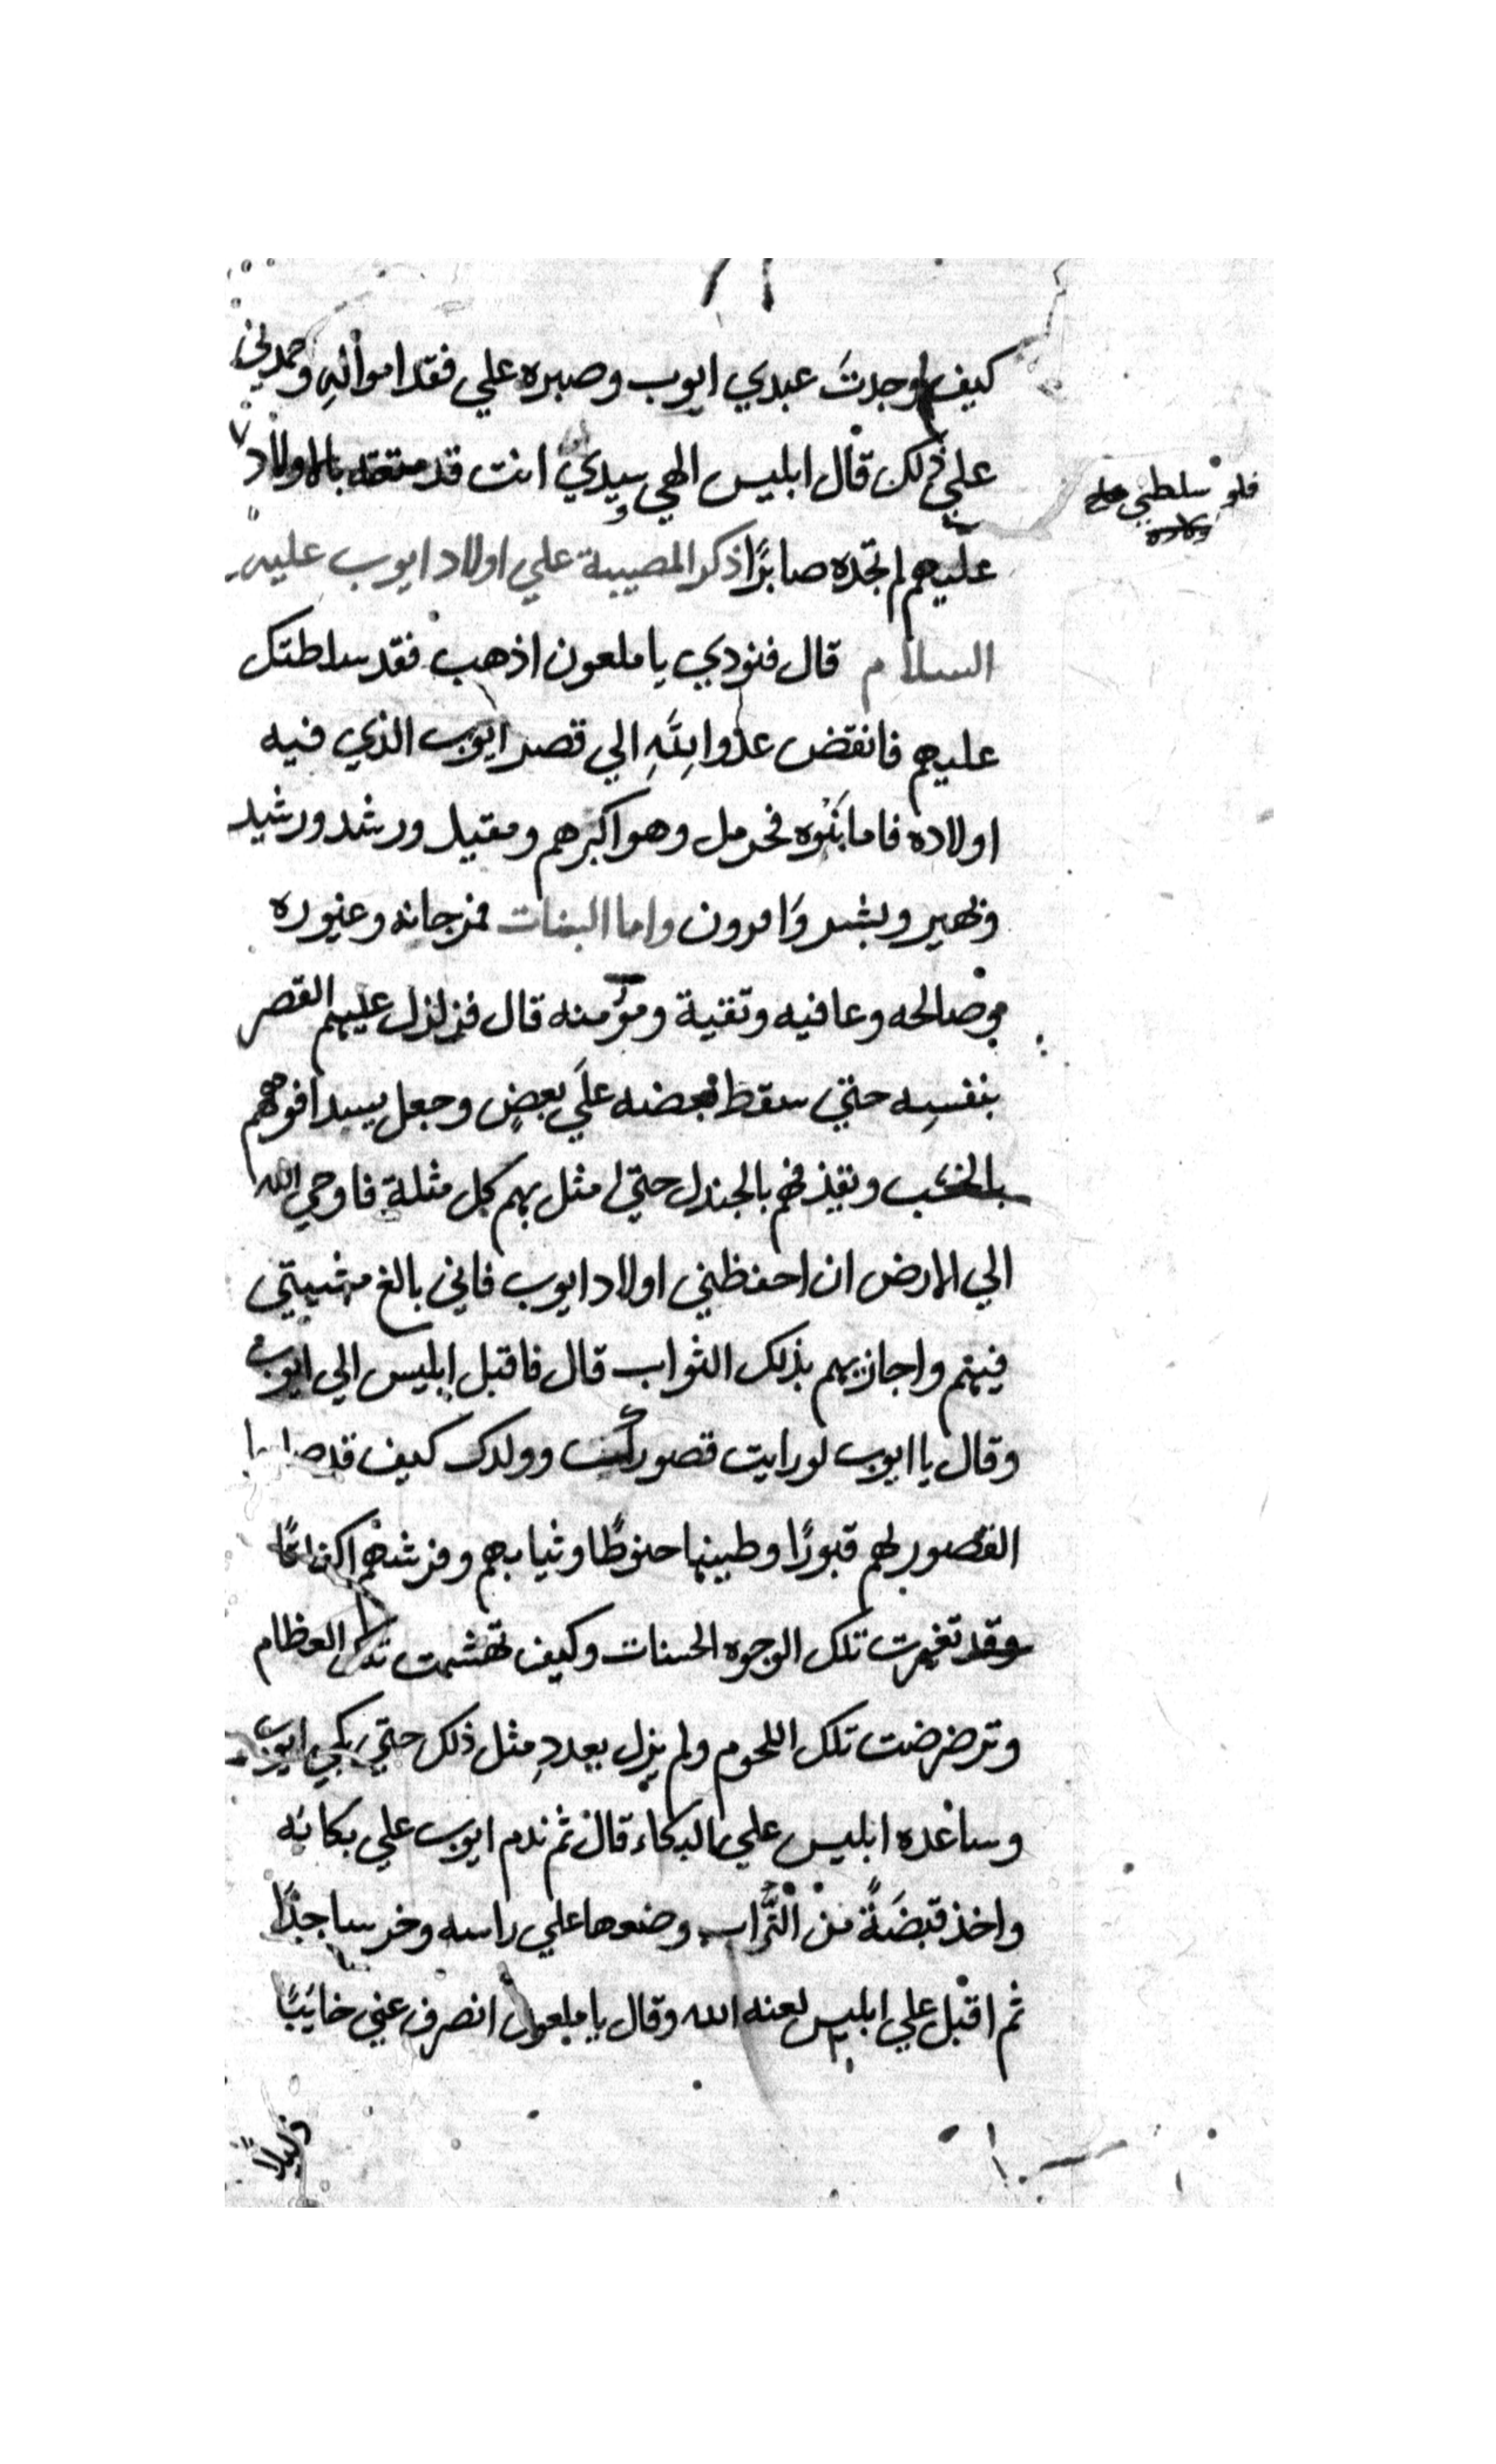 كيف وجدت عبدي ايوب وصبره علي فقد امواله وحمدني
علي ذلك قال ابليس الهي وسيدي انت قد متعته بالاولاد
فلو سلطني
عليهم لم تجده صابرًا ذكر المصيبة علي اولاد ايوب عليه
السلام قال فنودي يا ملعون اذهب فقد سلطتك
عليهم فانقض عدوا لله الي قصر ايوب الذي فيه
اولاده فاما بَنُوه فحرمل وهو اكبرهم ومقيل ورشد ورشيد
وظهير وبشر وَامرون واما البنات فمرجانه وعنيوره
وصالحه وعافيه وتقية ومؤمنه قال فزلزل عليهم القصر
بنفسِه حتي سقط بعضه علَي بعضٍ وجعل يسد افوههم
بالخشب ويقذفهم بالجندل حتي مثل بهم كل مثلة فاوحي الله
الي الارض ان احفظني اولاد ايوب فاني بالغ مشيتي
فيهم واجازيهم بذلك الثواب قال فاقبل ابليس الي ايوب
وقال يا ايوب لو رايت قصورك وولدك كيف قد
القصور لهم قبورًا وطينها حنوطًا وثيابهم وفرشهم اكفانًا
وقد تغيرت تلك الوجوه الحسنات وكيف تهشمت تلك العظام
وترضرضت تلك اللحوم ولم يزل يعددِ مثل ذلك حتي بكي ايوب
وساعده ابليس علي البكاء قال ثم ندم ايوب علي بكائه
واخذ قبضَةً من التُّراب وضعها علي راسه وخر ساجدًا
ثم اقبل علي ابليس لعنه الله وقال يا ملعون انصرف عني خايبًا
ذليلاً